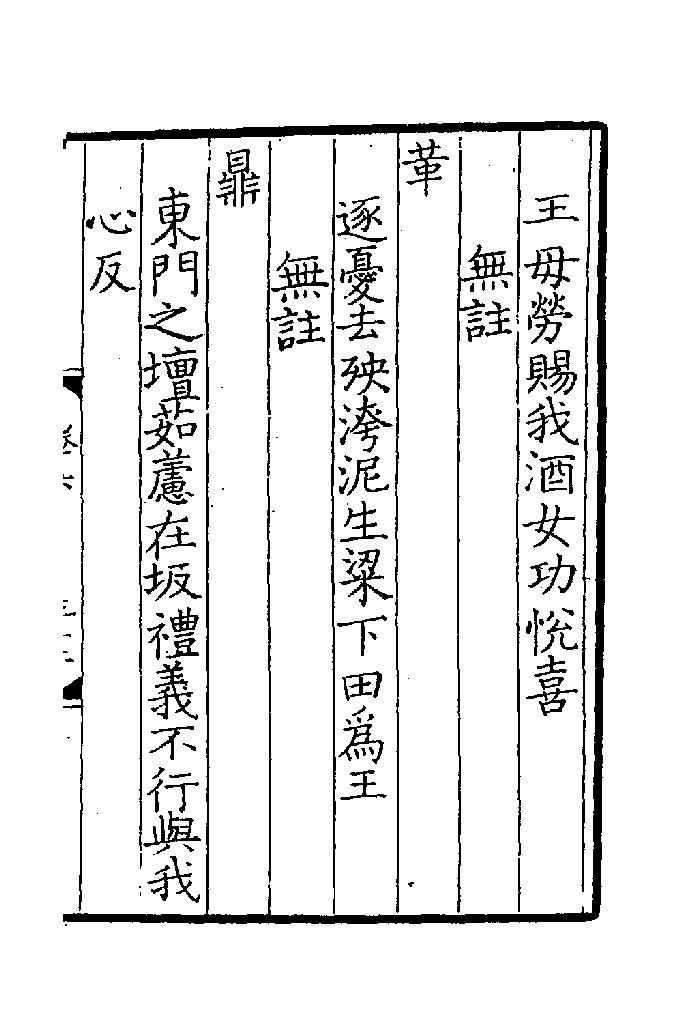 王毋勞賜我酒女功悅喜
無註
革
逐憂去殃洿泥生粱下田爲王
無註
鼎
東門之壇茹藘在坂禮義不行與我
心反
卷六